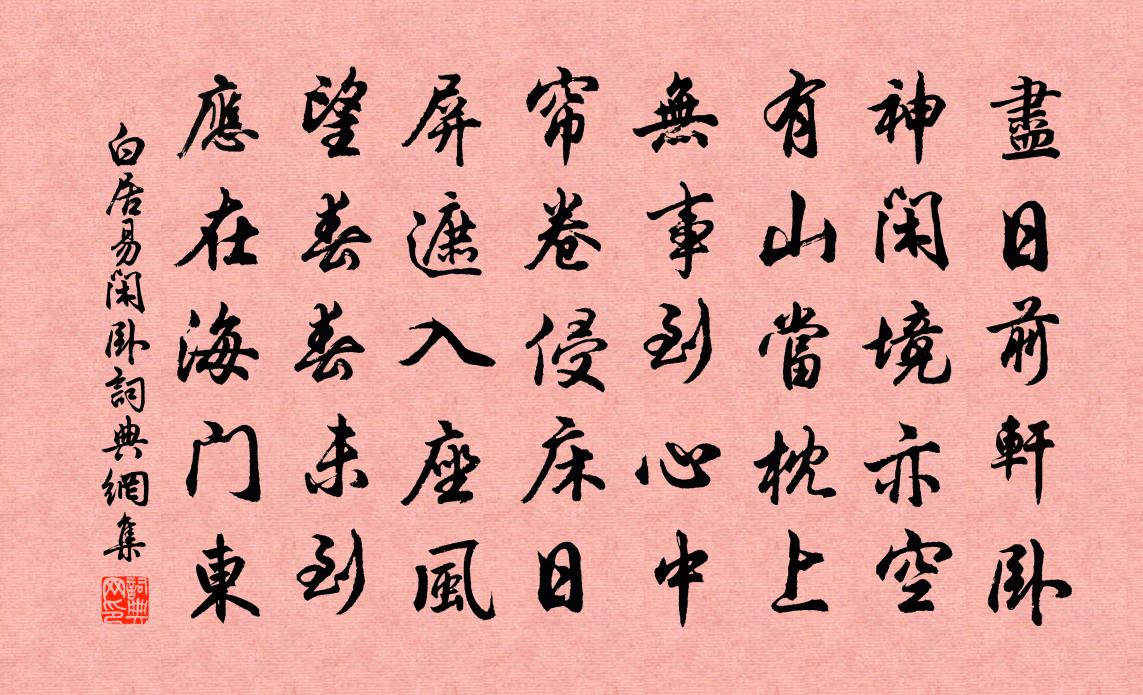 盡日前軒卧
神閑境亦空
有山當枕上
無事到心中
帘卷侵床日
屏遮入座風
望春春未到
應在海门東
白居易閑卧詞典網集
詞典網印